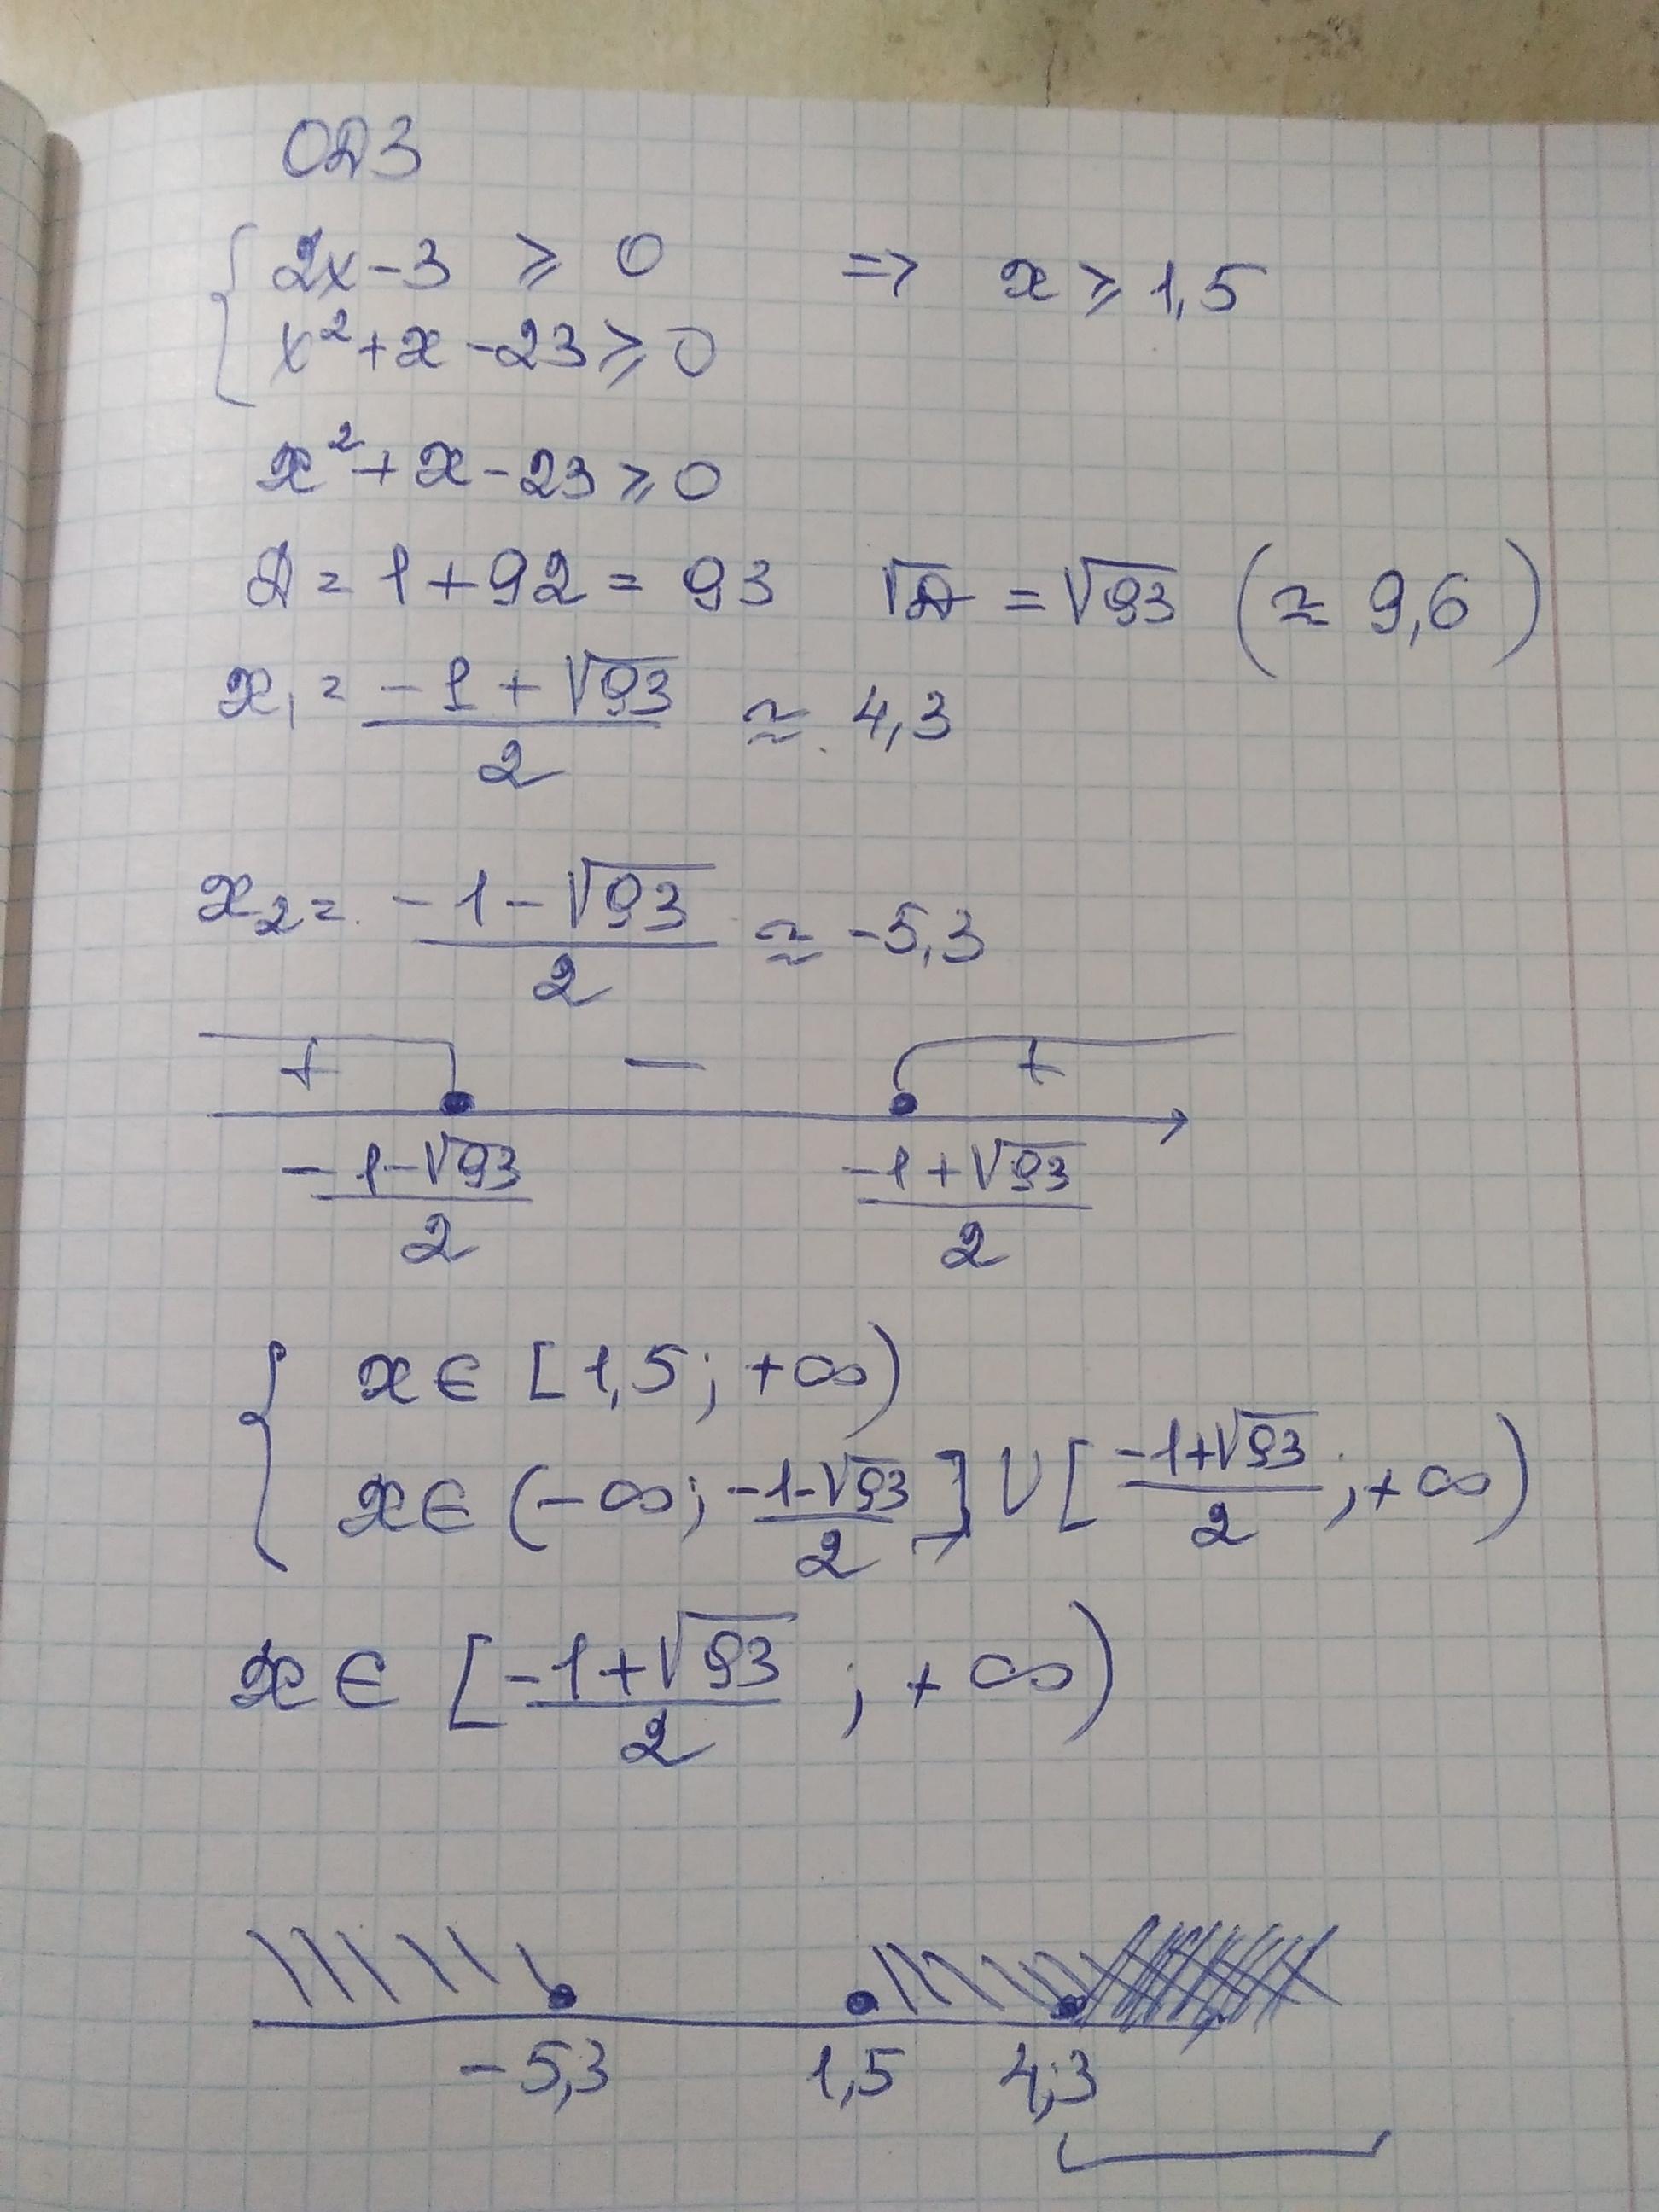 ОДЗ
{ 2x-3 ⩾ 0 => x ⩾ 1,5
x² + x - 23 ⩾ 0
x² + x - 23 ⩾ 0
D = 1 + 92 = 93 √D = √93 (≈ 9,6)
x₁ = (-1 + √93)/2 ≈ 4,3
x₂ = (-1 - √93)/2 ≈ -5,3
+ − +
(-1-√93)/2 (-1+√93)/2
{ x ∈ [1,5; +∞)
x ∈ (-∞; (-1-√93)/2] ∪ [(-1+√93)/2; +∞)
x ∈ [(-1+√93)/2; +∞)
-5,3 1,5 4,3